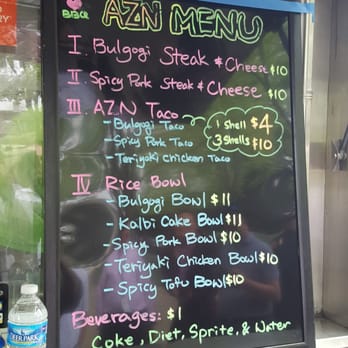 BBQ
AZN MENU
I. Bulgogi Steak & Cheese $10
II. Spicy Pork Steak & Cheese $10
III. AZN Taco
- Bulgogi Taco
- Spicy Pork Taco
- Teriyaki Chicken Taco
1 Shell $4
3 Shells $10
IV Rice Bowl
- Bulgogi Bowl $11
- Kalbi Cake Bowl $11
- Spicy Pork Bowl $10
- Teriyaki Chicken Bowl $10
- Spicy Tofu Bowl $10
Beverages: $1
Coke, Diet, Sprite, & Water
DEER PARK